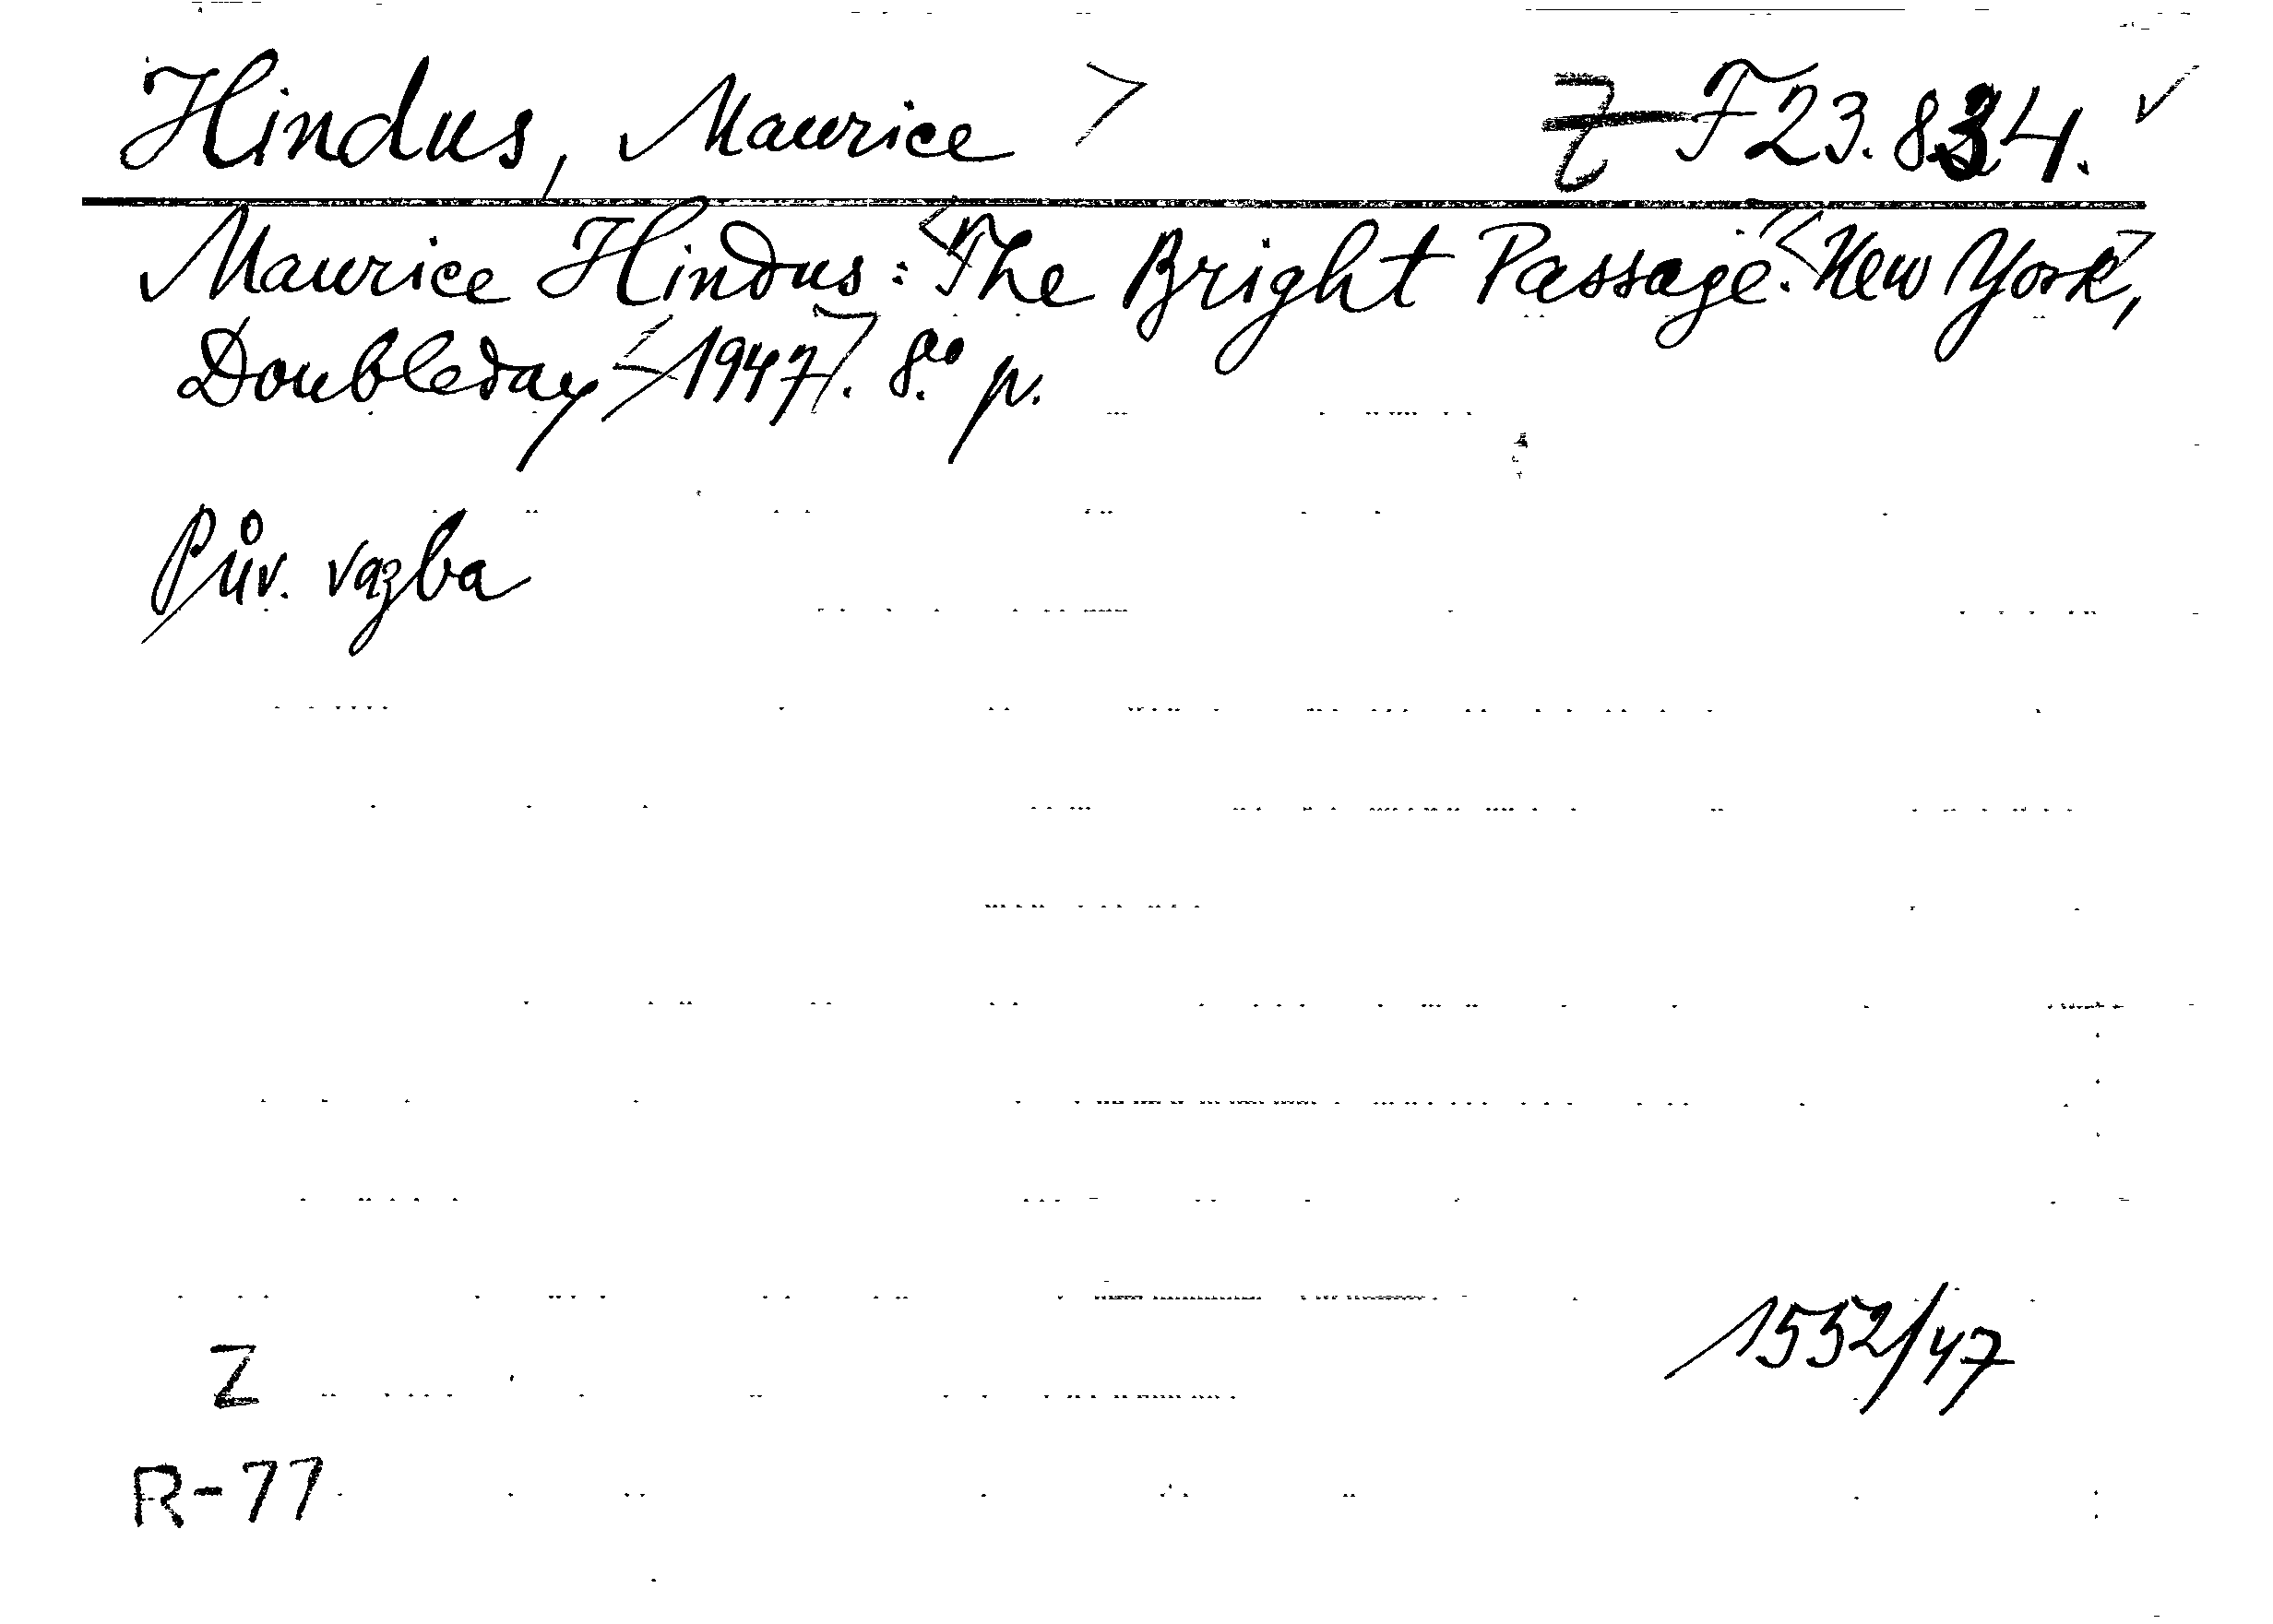 Hindus, Maurice > Z F 23.834. ✓
Maurice Hindus: <The Bright Passage.> <New York>,
Doubleday <1947>. 8° p.
Pův. vazba
1552/47
Z
R-77